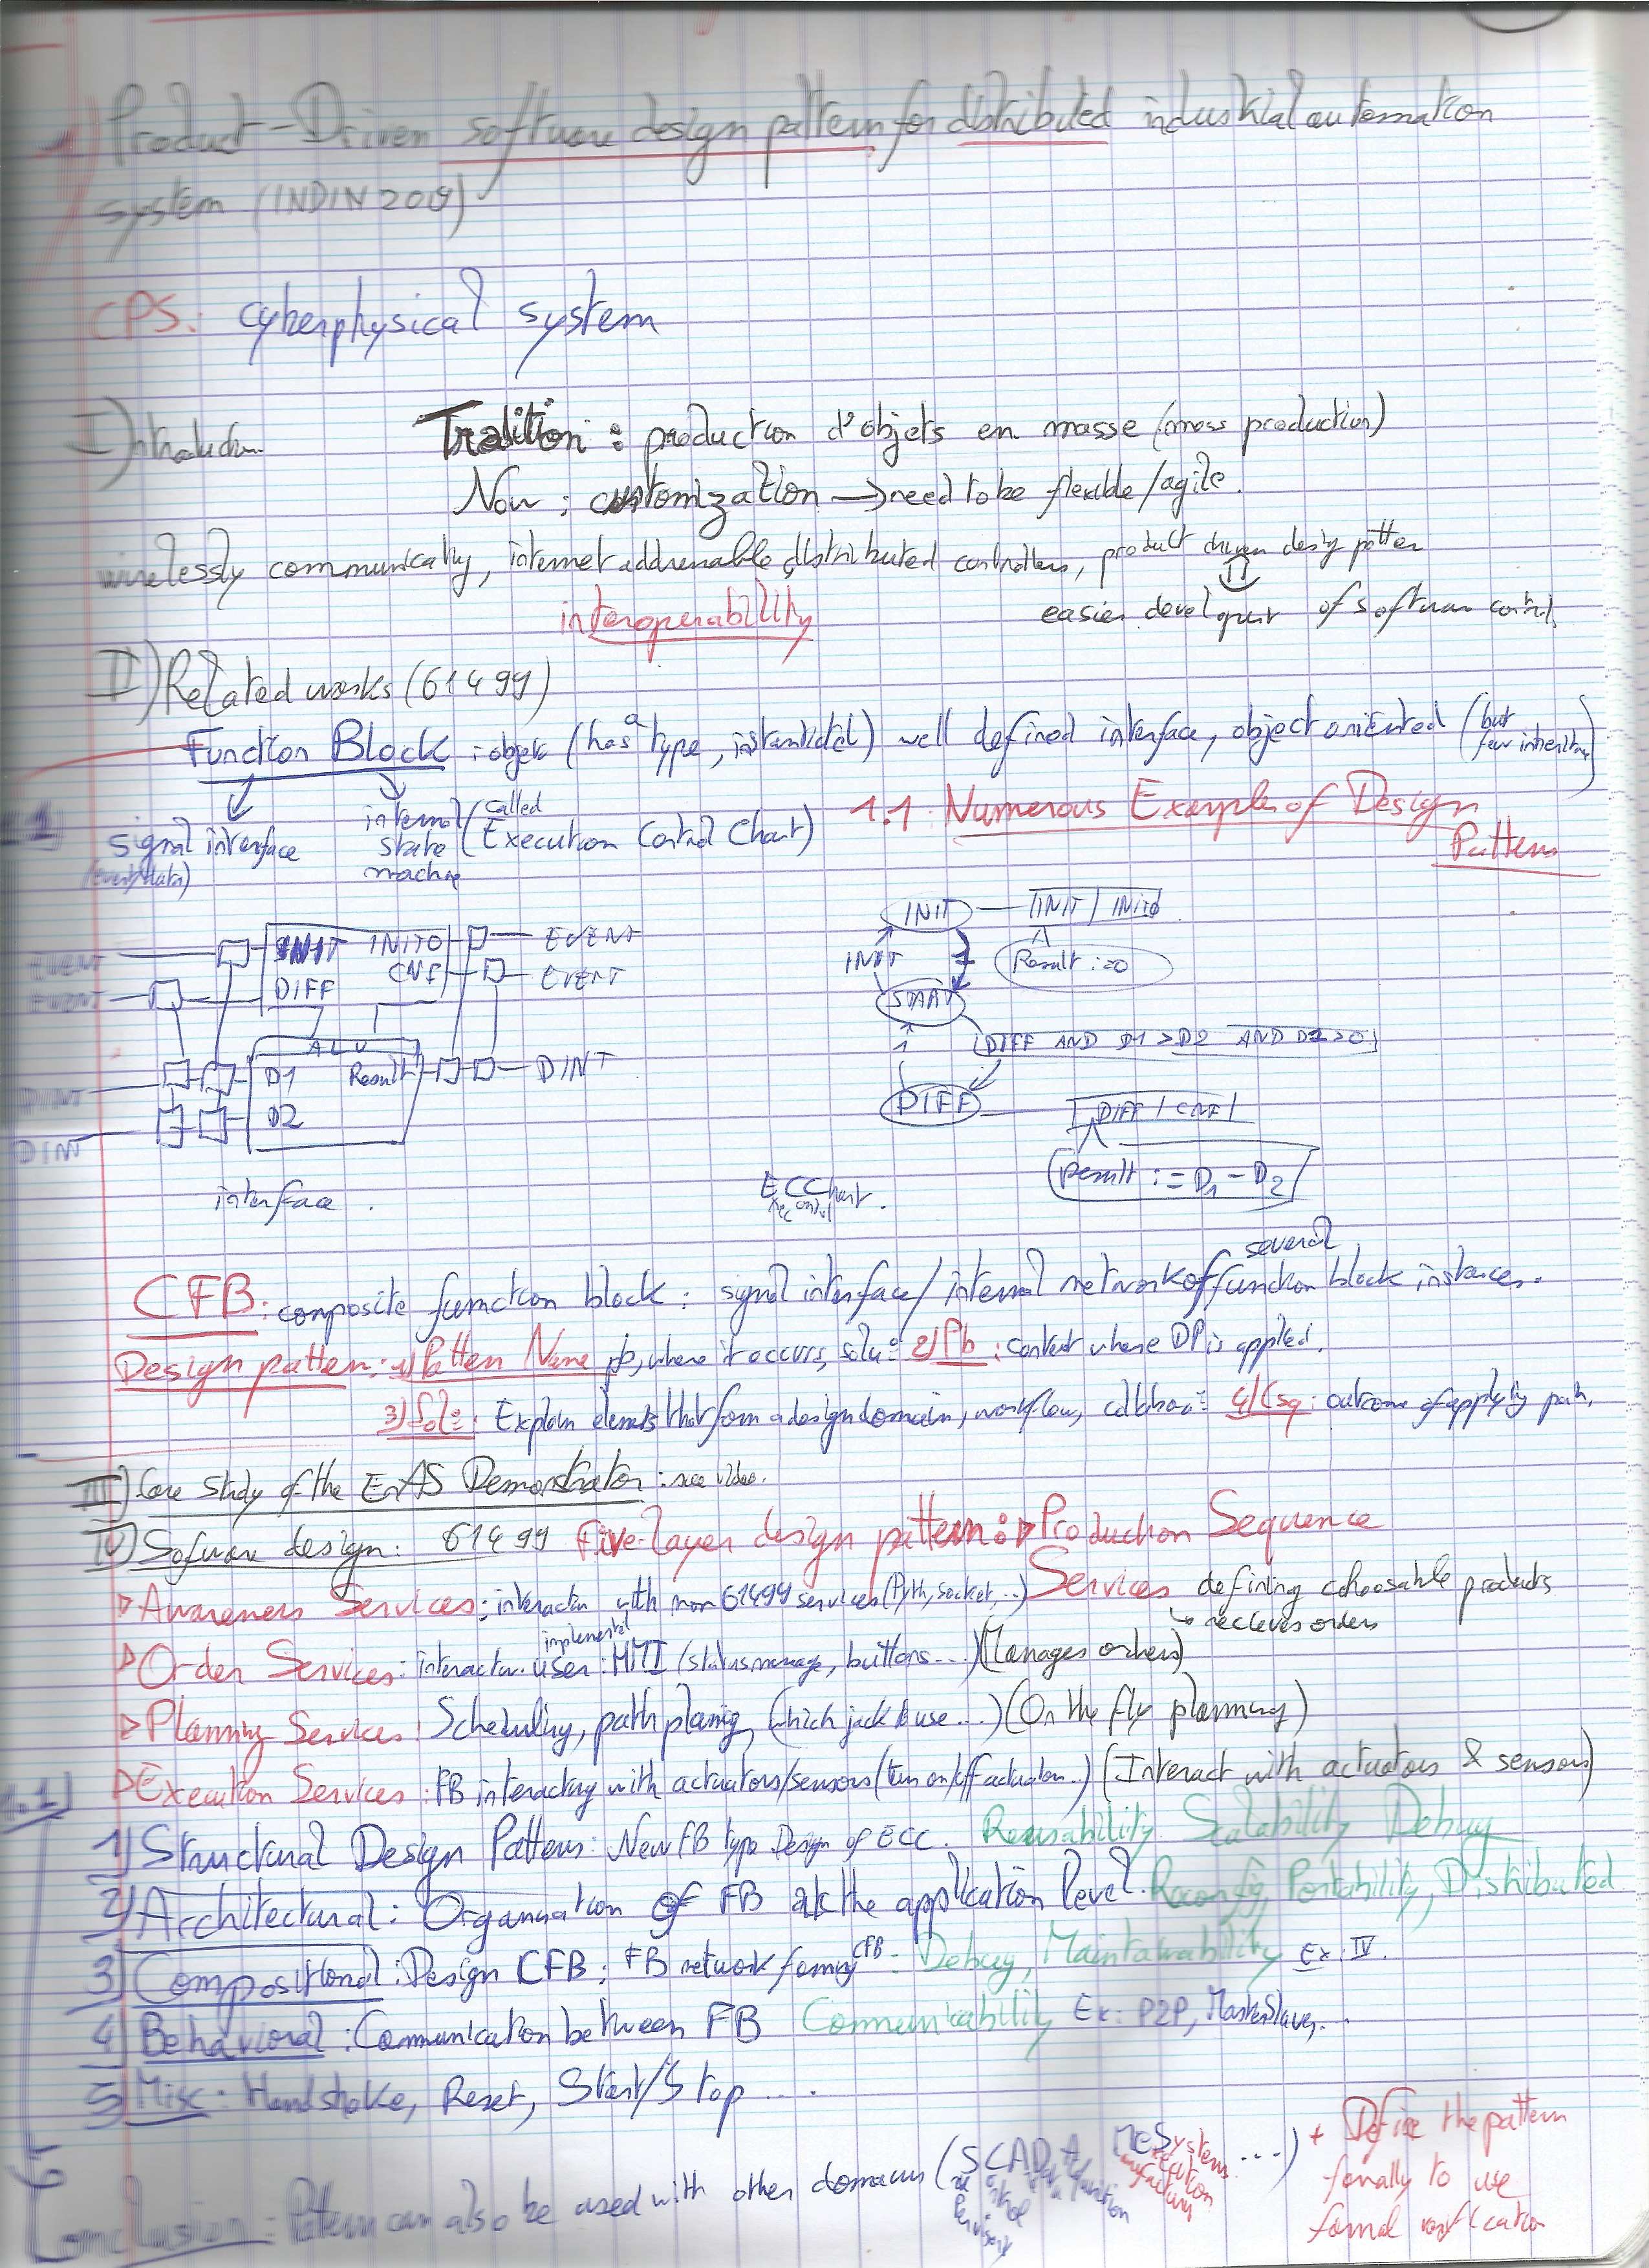 1) Product-Driven software design pattern for distributed industrial automation
system (INDIN 2019)
CPS: cyberphysical system
I) Introduction
Tradition : production d'objets en masse (mass production)
Now : customization → need to be flexible/agile.
wirelessly communically, internet addressable distributed controllers, product driven desig patten
interoperability
easier develop of softwar
II) Related works (61499)
Function Block : objet (has a type, instantiated) well defined interface, object oriented (but
signal interface
(event/data)
internal
state
machine
(called
Execution Control Chart)
1.1 Numerous Examples of Design
Pattern
EVENT
EVENT
INIT INITO
DIFF CNF
EVENT
EVENT
ALU
D1 Result
D2
DINT
DINT
DINT
interface.
INIT
INIT / INITO
INIT
1
Result :=0
START
1
DIFF AND D1 >D2 AND D2>0
DIFF
DIFF / CNF
Result := D1 - D2
ECChart.
CFB: composite function block : signal interface / internal network of several function block instances.
Design patten: 1) Patten Name pb, where it occurs, solu° 2) Pb : context where DP is applied.
3) Sol° : Explain elements that form a design domain, workflow, 4) Csq : outcome of applying
III) Case Study of the EnAS Demonstrator : see video.
IV) Sofware design: 61499 Five-layer design pattern : ▷ Production Sequence
Services defining choosable products
↳ recieves orders
▷ Awareness Services : interaction with non 61499 services (Pyth, socket, ..)
▷ Order Services : user : HMI (status message, buttons...) (Manages orders)
▷ Planning Services : Scheduling, path planing, (which jack to use ...) (On the fly planning)
▷ Execution Services : FB interacting with actuators/sensors (turn on/off actuator..) (Interact with actuators & sensors)
1) Structural Design Pattern : New FB type Design of ECC. Reusability Scalability Debug
2) Architectural : Organisation of FB at the application level. Reconfig, Portability, Distributed
3) Compositional : Design CFB : FB network forming CFB Debug, Maintainability Ex: IV.
4) Behavioral : Communication between FB Communicability Ex: P2P, Master Slave, ...
5) Misc : Handshake, Reset, Start/Stop ...
Conclusion : Pattern can also be used with other domains (SCADA MES ...) + Define the pattern
formally to use
formal verification